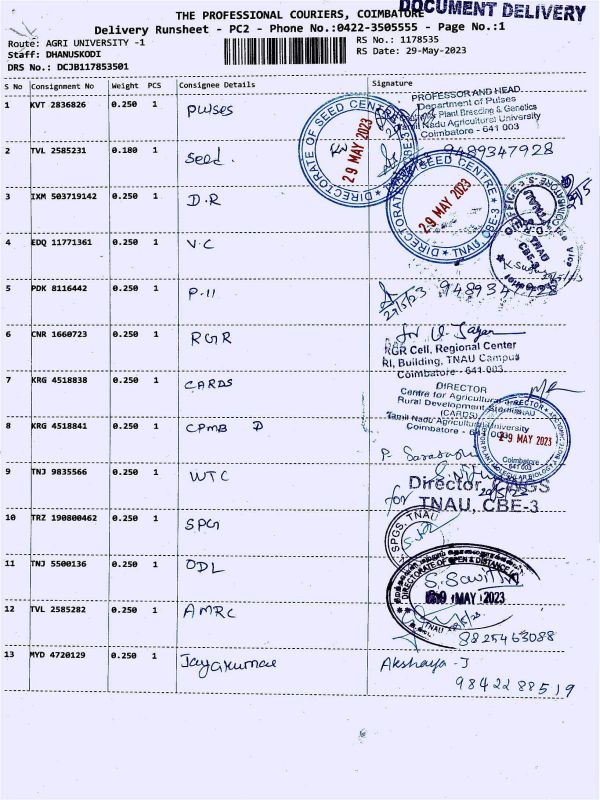 DOCUMENT DELIVERY
THE PROFESSIONAL COURIERS, COIMBATORE
Delivery Runsheet - PC2 - Phone No.:0422-3505555 - Page No.:1
Route: AGRI UNIVERSITY -1
RS No.: 1178535
Staff: DHANUSKODI
RS Date: 29-May-2023
DRS No.: DCJB117853501
S No Consignment No Weight PCS Consignee Details Signature
1 KVT 2836826 0.250 1 Pulses
PROFESSOR AND HEAD
Department of Pulses
Plant Breeding & Genetics
Tamil Nadu Agricultural University
Coimbatore - 641 003
DIRECTORATE OF SEED CENTRE
29 MAY 2023
2 TVL 2585231 0.180 1 Seed. 9489347928
DIRECTORATE SEED CENTRE
29 MAY 2023
TNAU, CBE-3
3 IXM 503719142 0.250 1 D.R
4 EDQ 11771361 0.250 1 V.C
TNAU
CBE-3
5 PDK 8116442 0.250 1 P-11
29/5/23 9489347928
6 CNR 1660723 0.250 1 RGR
RGR Cell, Regional Center
RI, Building, TNAU Campus
Coimbatore - 641 003.
7 KRG 4518838 0.250 1 CARDS
DIRECTOR
Centre for Agricultural and
Rural Development Studies
(CARDS)
Tamil Nadu Agricultural University
Coimbatore - 641 003
8 KRG 4518841 0.250 1 CPMB D
29 MAY 2023
Coimbatore
641 003
9 TNJ 9835566 0.250 1 WTC
Director,
for TNAU, CBE-3
10 TRZ 190800462 0.250 1 SPG
SPGS, TNAU
11 TNJ 5500136 0.250 1 ODL
DIRECTORATE OF OPEN & DISTANCE
MAY 2023
TNAU
12 TVL 2585282 0.250 1 AMRC
8825463088
13 MYD 4720129 0.250 1 Jayakumar Akshaya - J
9842288519